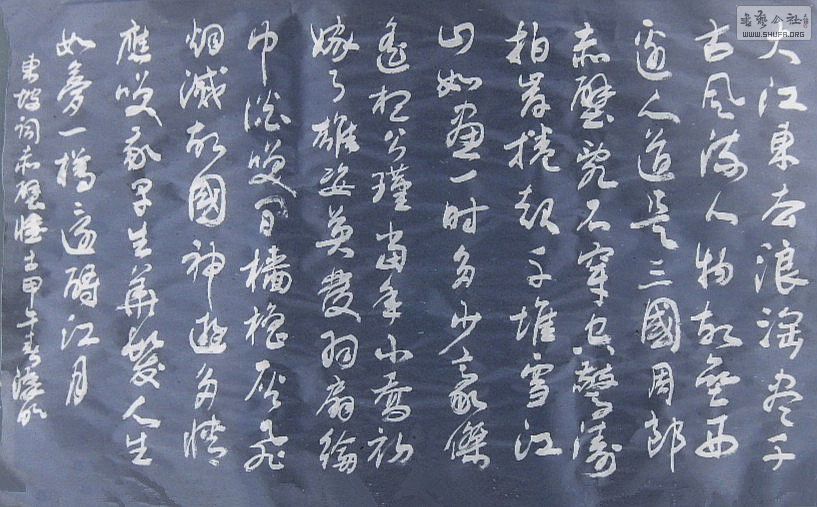 大江東去浪淘盡千
古風流人物故壘西
邊人道是三國周郎
赤壁亂石穿空驚濤
拍岸捲起千堆雪江
山如畫一時多少豪傑
遙想公瑾當年小喬初
嫁了雄姿英發羽扇綸
巾談笑間檣櫓灰飛
烟滅故國神遊多情
應笑我早生華髮人生
如夢一樽還酹江月
東坡詞赤壁懷古甲午春
書藝公社
WWW.SHUFA.ORG